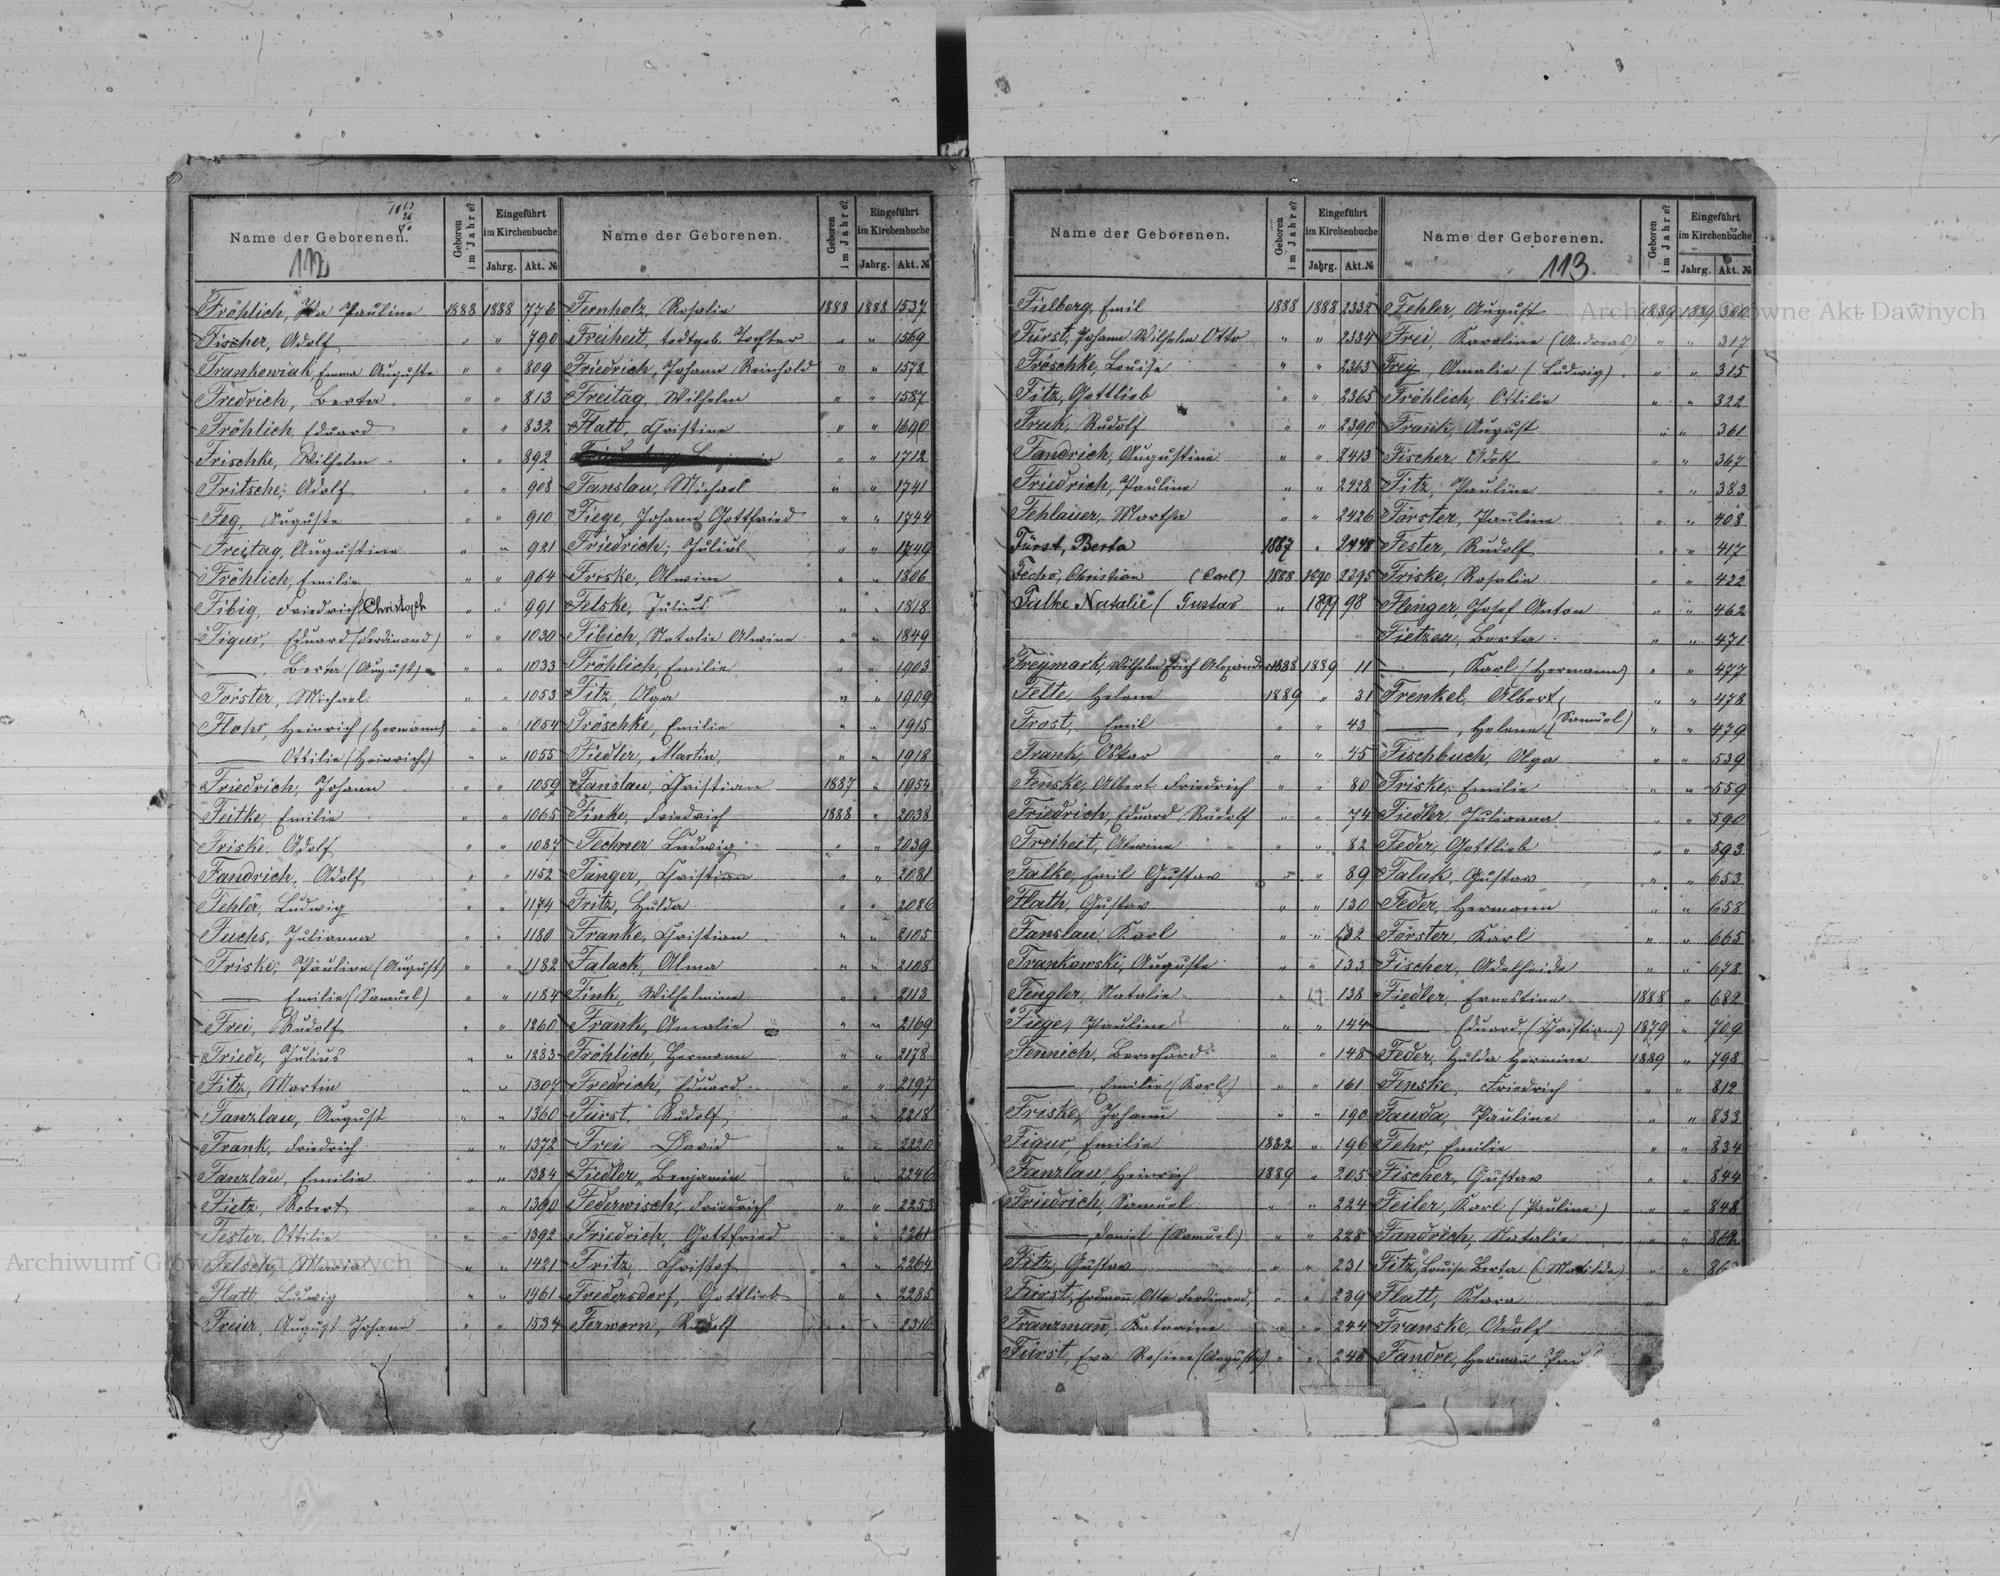 Name der Geborenen.
112
Geboren im Jahre?
Eingeführt im Kirchenbuche
Jahrg. Akt. №
Fröhlich, Pauline 1888 1888 776
Fischer, Adolf " " 790
Frankowiak Emma Auguste " " 809
Fredrich, Berta " " 813
Fröhlich, Eduard " " 832
Frischke, Wilhelm " " 892
Fritsche, Adolf " " 908
Feg, Auguste " " 910
Freitag, Augustine " " 921
Fröhlich, Emilie " " 964
Fibig, Friedrich (Christoph " " 991
Figur, Eduard (Ferdinand) " " 1030
—— Berta (August) " " 1033
Förster, Michael " " 1053
Flohr, Heinrich (Hermann) " " 1054
—— Ottilie (Heinrich) " " 1055
Friedrich, Johann " " 1059
Feitke, Emilie " " 1065
Friske, Adolf " " 1087
Fandrich, Adolf " " 1152
Fehler, Ludwig " " 1174
Fuchs, Julianna " " 1180
Friske, Pauline (August) " " 1182
—— Emilie (Samuel) " " 1184
Frei, Rudolf " " 1260
Friede, Julius " " 1283
Fitz, Martin " " 1307
Fanzlau, August " " 1360
Frank, Friedrich " " 1372
Fanzlau, Emilie " " 1384
Fietz, Robert " " 1390
Fester, Ottilie " " 1392
Felsch, Maria " " 1421
Flatt, Ludwig " " 1461
Freier, August Johann " " 1534
Name der Geborenen.
Geboren im Jahre?
Eingeführt im Kirchenbuche
Jahrg. Akt. №
Fernholz, Rosalie 1888 1888 1537
Freiheit, todtgeb. Tochter " " 1569
Friedrich, Johann Reinhold " " 1578
Freitag, Wilhelm " " 1587
Flatt, Christine " " 1690
" " 1712
Fanslau, Michael " " 1741
Fiege, Johann Gottfried " " 1744
Friedrich, Julius " " 1749
Friske, Alwine " " 1806
Felske, Julius " " 1818
Fibich, Natalie Alwine " " 1849
Fröhlich, Emilie " " 1903
Fitz, Olga " " 1909
Fröschke, Emilie " " 1915
Fiedler, Martin, " " 1918
Fanslau, Christian 1887 " 1954
Finke, Friedrich 1888 " 2038
Fechner Ludwig " " 2039
Fänger, Christian " " 2081
Fritz, Hulda " " 2086
Franke, Christian " " 2105
Falack, Alma " " 2108
Fink, Wilhelmine " " 2113
Frank, Amalie " " 2169
Fröhlich, Hermann " " 2178
Fredrich, Eduard " " 2197
Fürst, Rudolf " " 2218
Frei David " " 2220
Fiedler, Benjamin " " 2246
Federwisch, Friedrich " " 2253
Friedrich, Gottfried " " 2261
Fritz, Christof " " 2264
Fredersdorf, Gottlieb " " 2285
Ferworn, Rudolf " " 2316
Name der Geborenen.
Geboren im Jahre?
Eingeführt im Kirchenbuche
Jahrg. Akt. №
Fielberg, Emil 1888 1888 2332
Fürst, Johann Wilhelm Otto " " 2334
Fröschke, Louise " " 2363
Fitz, Gottlieb " " 2365
Fruk, Rudolf " " 2390
Fandrich, Augustine " " 2413
Friedrich, Pauline " " 2428
Fehlauer, Martha " " 2426
Fürst, Berta 1887 " 2448
Fecho, Christian (Carl) 1888 1890 2395
Falke Natalie (Gustav " 1899 98
Freymark, Wilhelm Erich Alexander 1888 1889 11
Felte, Helene 1889 " 31
Frost, Emil " " 43
Frank, Oskar " " 45
Fenske, Albert Friedrich " " 80
Friedrich, Eduard Rudolf " " 74
Freiheit, Alwine " " 82
Falke, Emil Gustav " " 89
Flath, Gustav " " 130
Fanslau, Karl " " 132
Frankowski, Auguste " " 133
Fengler, Natalie " " 138
Fiege, Pauline " " 144
Fennich, Bernhard " " 148
——, Emilie (Karl) " " 161
Friske, Johann " " 190
Figur, Emilie 1882 " 196
Fanzlau, Heinrich 1889 " 205
Friedrich, Samuel " " 224
——, Daniel (Samuel) " " 228
Fitz, Gustav " " 231
Fürst, Erdmann, Otto Ferdinand, " " 239
Franzmann, Katarine " " 244
Fürst, Eva Rosine (Auguste) " " 246
Name der Geborenen.
113
Geboren im Jahre?
Eingeführt im Kirchenbuche
Jahrg. Akt. №
Fehler, August 1889 1889 300
Frei, Karoline (Andreas) " " 317
Frey, Amalie (Ludwig) " " 315
Fröhlich, Ottilie " " 322
Frank, August " " 361
Fischer, Adolf " " 367
Fitz, Pauline " " 383
Förster, Pauline " " 408
Fester, Rudolf " " 417
Friske, Rosalie " " 422
Flenger, Josef Anton " " 462
Fietzer, Berta " " 471
——, Karl (Hermann) " " 477
Frenkel, Albert " " 478
——, Helene (Samuel) " " 479
Fischbuch, Olga " " 539
Friske, Emilie " " 559
Fiedler, Julianna " " 590
Feder, Gottlieb " " 593
Falak, Gustav " " 653
Feder, Hermann " " 658
Förster, Karl " " 665
Fischer, Adelheide " " 678
Fiedler, Ernestine 1888 " 682
—— Eduard, (Christian) 1879 " 709
Feder, Hulda Hermine 1889 " 798
Fenske, Friedrich " " 812
Fauda, Pauline " " 833
Fehr, Emilie " " 834
Fischer, Gustav " " 844
Feiler, Karl (Pauline) " " 848
Fandrich, Natalie " " 862
Fitz, Louise Berta (Matilde) " " 86
Flatt, Klara "
Franske, Adolf
Fandre, Hermann Pau
Archiwum Główne Akt Dawnych
Archiwum Główne Akt Dawnych